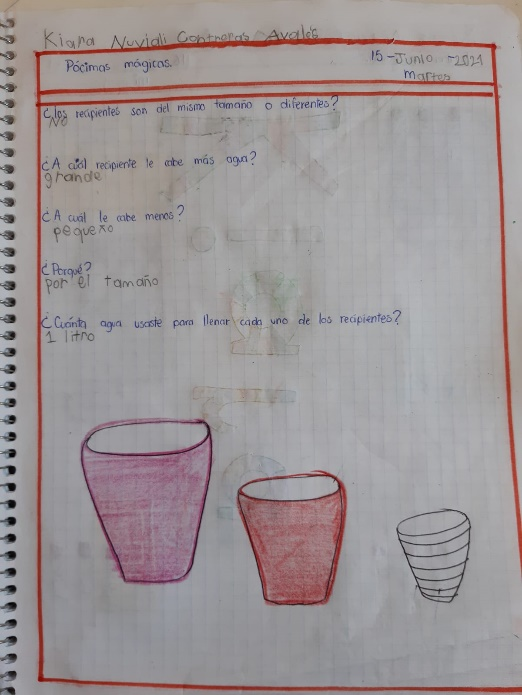 Kiara Nuviali Contreras Avalos
Pócimas mágicas.
15-Junio-2021
martes
¿los recipientes son del mismo tamaño o diferentes?
No
¿A cuál recipiente le cabe más agua?
grande
¿A cuál le cabe menos?
pequexo
¿Porqué?
por el tamaño
¿Cuánta agua usaste para llenar cada uno de los recipientes?
1 litro